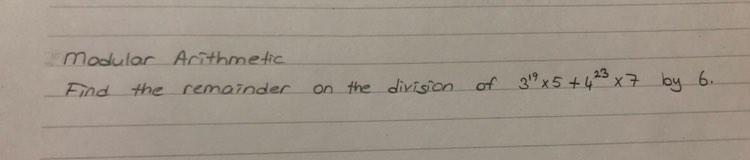 Modular Arithmetic
Find the remainder on the division of 3¹⁹x5+4²³x7 by 6.